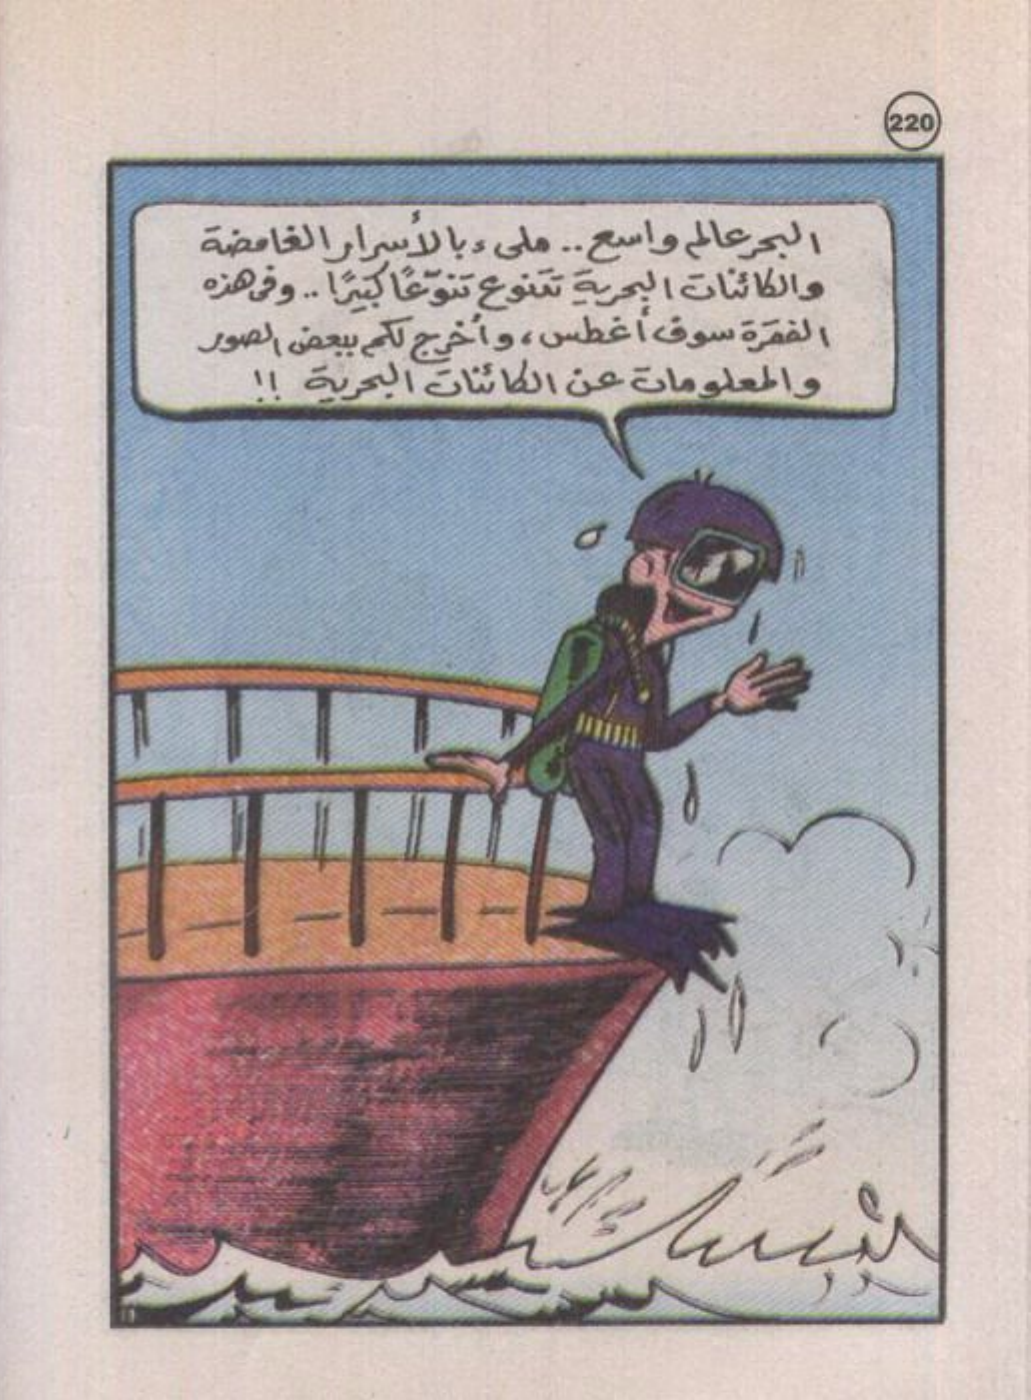 220
البحر عالم واسع .. ملىء بالأسرار الغامضة
والكائنات البحرية تتنوع تنوّعًا كبيرًا .. وفى هذه
الفقرة سوف أغطس ، وأخرج لكم ببعض الصور
والمعلومات عن الكائنات البحرية !!